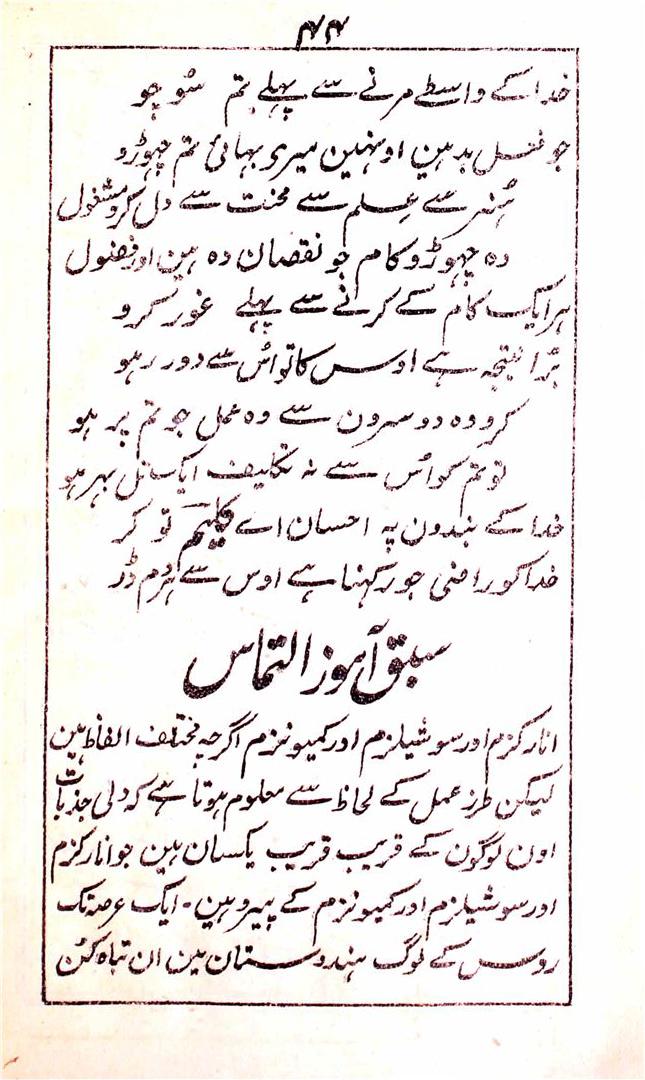 ۴۴
خدا کے واسطے مرنے سے پہلے تم سُوچو
جو فعل بد ہین اونہین میری بہائی تم چہوڑو
ہُنر سے عِلم سے محنت سے دل کرو مشغول
وہ چہوڑو کام جو نقصان دہ ہین اور فضول
ہر ایک کام کے کرنے سے پہلے غور کرو
بُرا نتیجہ ہے اوس کا تو اُس سے دور رہو
کرو وہ دوسرون سے وہ عمل جو تم پر ہو
تو تم کو اُس سے نہ تکلیف ایک تل بہر ہو
خدا کے بندون پہ احسان اے کلیم تو کر
خدا کو راضی جو رکہنا ہے اوس سے ہردم ڈر
سبق آموز التماس
انارکزم اور سوشیلزم اور کمیونزم اگرچہ مختلف الفاظ ہین
لیکن طرز عمل کے لحاظ سے معلوم ہوتا ہے کہ دلی جذبات
اون لوگون کے قریب قریب یکسان ہین جو انارکزم
اور سوشیلزم اور کمیونزم کے پیرو ہین۔ ایک عرصہ تک
روس کے لوگ ہندوستان مین ان تباہ کُن